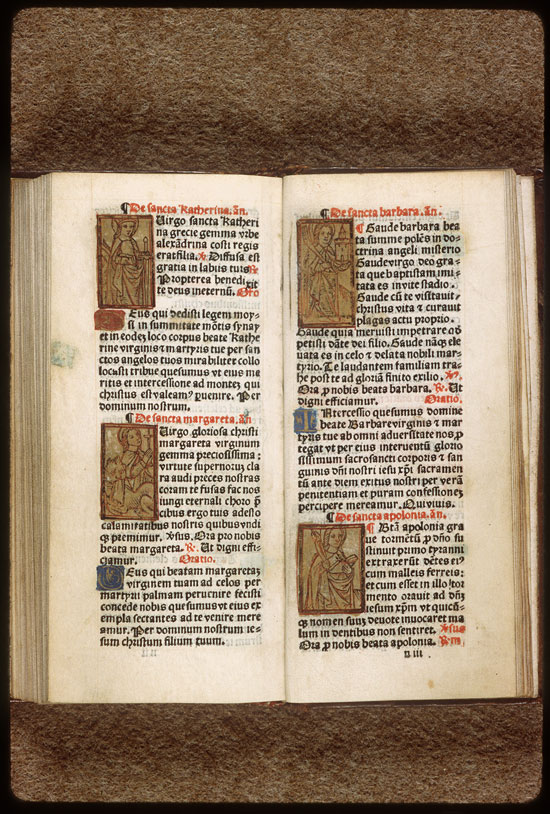 ¶ De sancta Katherina. añ.
Uirgo sancta Katheri
na grecie gemma vrbe
alexãdrina costi regis
erat filia. ℣ Diffusa est
gratia in labiis tuis ℟
Propterea benedixit
te deus ineternũ. Oro
Deus qui dedisti legem moy-
si in summitate mõtis synay
et in eodez loco corpus beate Kathe
rine virginis & martyris tue per san
ctos angelos tuos mirabiliter collo
locasti tribue quesumus vt eius me
ritis et intercessione ad montez qui
christus est valeamꝰ puenire. Per
dominum nostrum.
¶ De sancta margareta. añ
Uirgo gloriosa christi
margareta virginum
gemma preciosissima :
virtute supernoruz cla
ra audi preces nostras
coram te fusas fac nos
iungi eternali choro p̃
cibus ergo tuis adesto
calamitatibus nostris quibus vndi
qz premimur. ℣sus. Ora pro nobis
beata margareta. ℟. Ut digni effi-
ciamur. Oratio.
Deus qui beatam margaretaz
virginem tuam ad celos per
martyrii palmam peruenire fecisti
concede nobis quesumus vt eius ex
empla sectantes ad te venire mere
amur. Per dominum nostrum ie-
sum christum filium tuum.
¶ De sancta barbara. añ.
¶ Gaude barbara bea
ta summe polẽs in do-
ctrina angeli misterio
Gaude virgo deo gra-
ta que baptistam imi-
tata es in vite stadio.
Gaude cũ te visitauit
christus vita & curauit
plagas actu proprio.
Gaude quia meruisti impetrare qð
petisti dãte dei filio. Gaude nãqz ele
uata es in celo & delata nobili mar-
tyrio. Te laudantem familiam tra-
he post te ad gloriã finito exilio. ℣.
Ora ꝓ nobis beata barbara. ℟. Ut
digni efficiamur. Oratio.
Intercessio quesumus domine
beate Barbare virginis & mar
tyris tue ab omni aduersitate nos ꝓ
tegat vt per eius interuentũ glorio
sissimum sacrosancti corporis & san
guinis dñi nostri iesu xp̃i sacramen
tũ ante diem exitus nostri per verã
penitentiam et puram confessionez
percipere mereamur. Qui viuis.
¶ De sancta apolonia. añ.
¶ Btã apolonia gra
ue tormẽtũ ꝓ dño su
stinuit primo tyranni
extraxerũt dẽtes eiꝰ
cum malleis ferreis:
et cum esset in illo tor
mento orauit ad dñz
iesum xp̃m vt quicũ-
qz nomen suuz deuote inuocaret ma
lum in dentibus non sentiret. ℣sus
Ora ꝓ nobis beata apolonia. ℟m
n iii